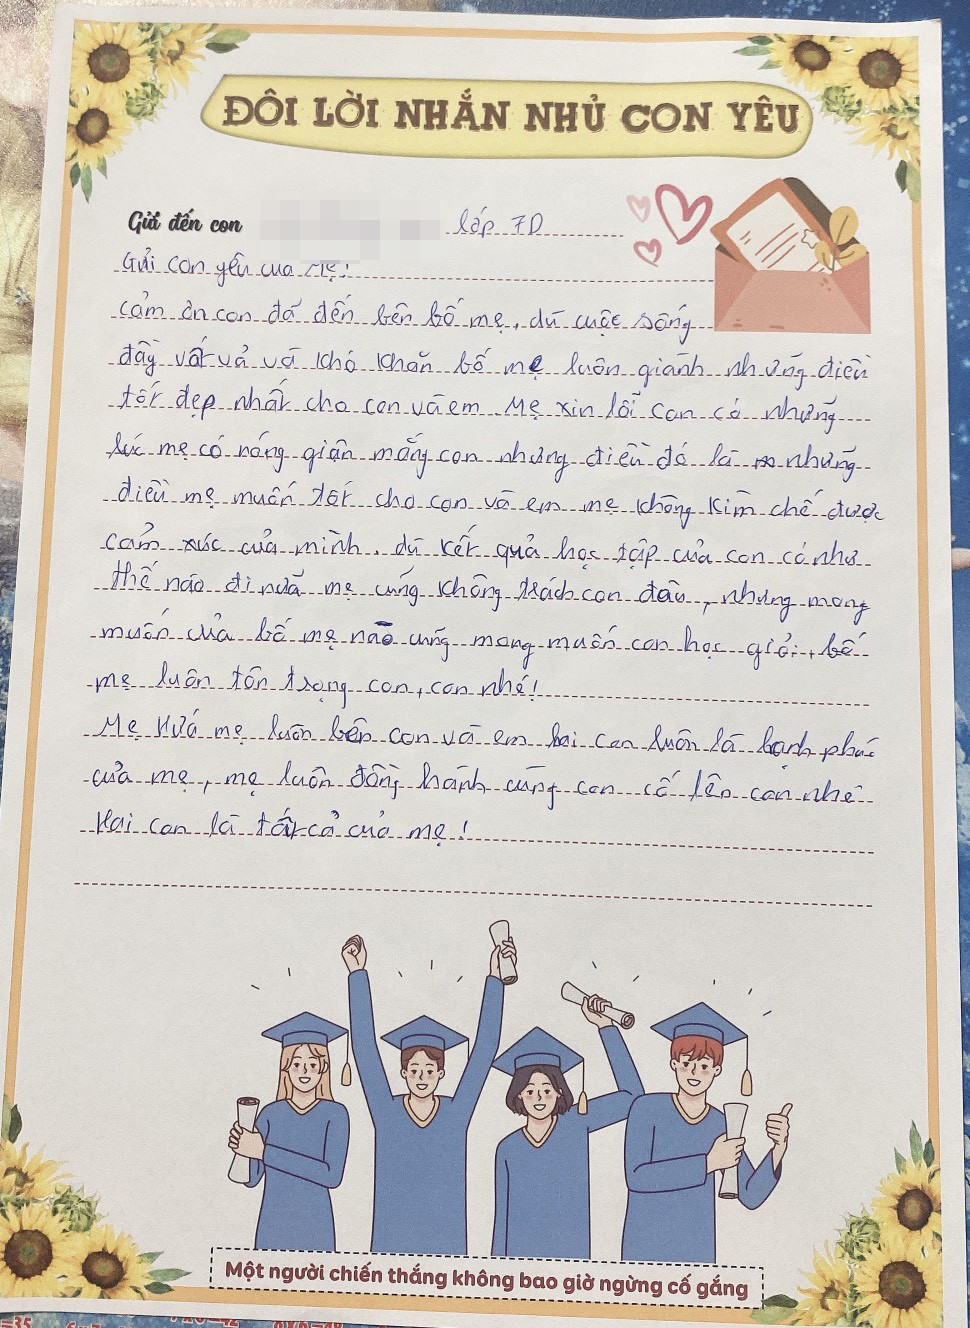 ĐÔI LỜI NHẮN NHỦ CON YÊU
Gửi đến con lớp 7D
Gửi con yêu của Mẹ!
cảm ơn con đã đến bên bố mẹ, dù cuộc sống
đầy vất vả và khó khăn bố mẹ luôn giành những điều
tốt đẹp nhất cho con và em Mẹ xin lỗi con có những
lúc mẹ có nóng giận mắng con nhưng điều đó là những
điều mẹ muốn tốt cho con và em mẹ không kìm chế được
cảm xúc của mình. dù kết quả học tập của con có như
thế nào đi nữa mẹ cũng không trách con đâu, nhưng mong
muốn của bố mẹ nào cũng mong muốn con học giỏi, bố
mẹ luôn tôn trọng con, con nhé!
Mẹ Hứa mẹ luôn bên con và em hai con luôn là hạnh phúc
của mẹ, mẹ luôn đồng hành cùng con cố lên con nhé
Hai con là tất cả của mẹ!
Một người chiến thắng không bao giờ ngừng cố gắng
=35